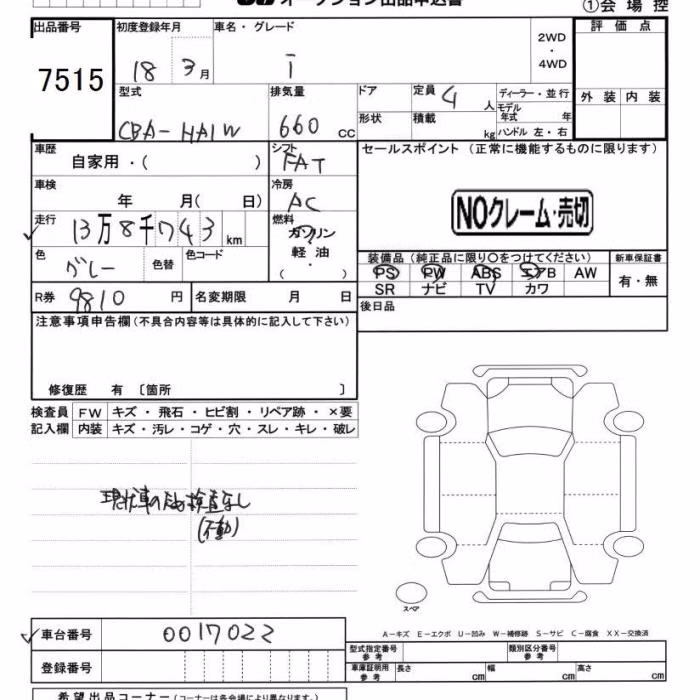 オークション出品申込書
①会場控
出品番号 初度登録年月 車名・グレード 評価点
7515 18 3月 i 2WD・4WD
型式 排気量 ドア 定員 4人 ディーラー・並行 外装 内装
CBA-HA1W 660 cc 形状 積載 kg モデル年式 年
ハンドル 左・右
車歴 自家用・( ) シフト FAT セールスポイント (正常に機能するものに限ります)
車検 年 月( 日) 冷房 AC
NOクレーム・売切
走行 13万8千743 km 燃料 ガソリン・軽油・( )
色 グレー 色替 色コード 装備品(純正品に限り○をつけてください) 新車保証書
PS PW ABS エアB AW 有・無
SR ナビ TV カワ
R券 9810円 名変期限 月 日 後日品
注意事項申告欄(不具合内容等は具体的に記入して下さい)
修復歴 有〔箇所 〕
検査員 FW キズ・飛石・ヒビ割・リペア跡・×要
記入欄 内装 キズ・汚レ・コゲ・穴・スレ・キレ・破レ
現状車のため検査なし
(不動)
スペア
A-キズ E-エクボ U-凹み W-補修跡 S-サビ C-腐食 XX-交換済
車台番号 0017022
型式指定番号 参考 類別区分番号 参考
登録番号 車庫証明用 参考 長さ cm 幅 cm 高さ cm
希望出品コーナー(コーナーは各会場により異なります。)